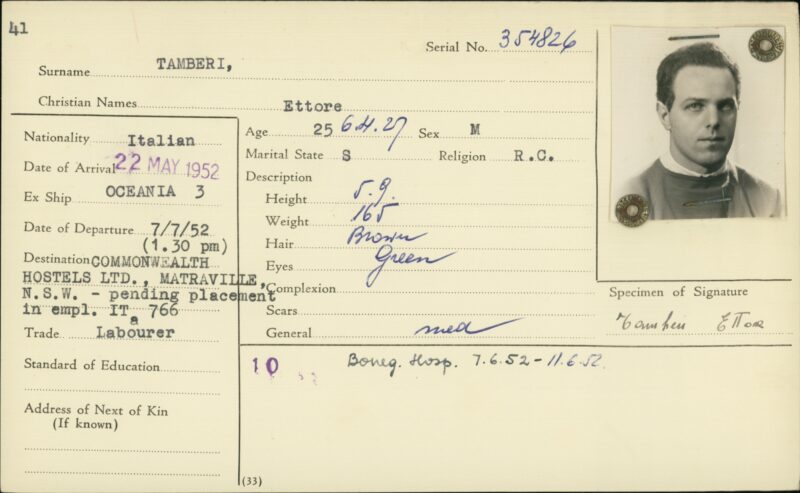 41
Serial No. 354826
Surname TAMBERI,
Christian Names Ettore
Nationality Italian
Date of Arrival 22 MAY 1952
Ex Ship OCEANIA 3
Date of Departure 7/7/52
(1.30 pm)
Destination COMMONWEALTH
HOSTELS LTD., MATRAVILLE,
N.S.W. - pending placement
in empl. ITa 766
Trade Labourer
Standard of Education
Address of Next of Kin
(If known)
Age 25 6.4.27 Sex M
Marital State S Religion R.C.
Description
Height 5.9.
Weight 165
Hair Brown
Eyes Green
Complexion
Scars
General med
10 Boneg. Hosp. 7.6.52-11.6.52.
(33)
Specimen of Signature
Tamberi Ettore